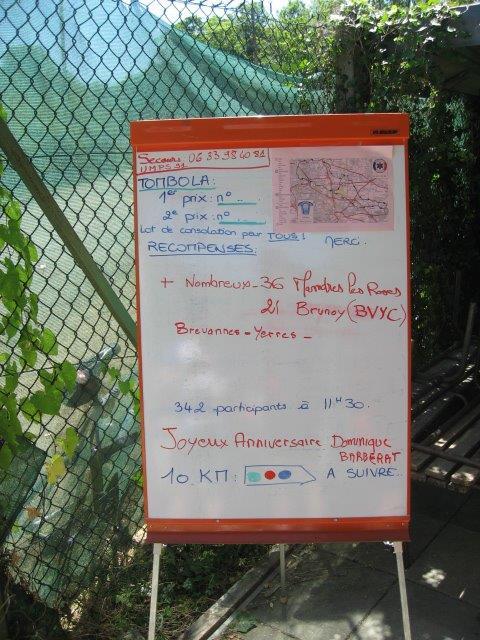 Secours 06 33 98 40 81
UMPS 91
TOMBOLA:
1er prix: n°...
2e prix: n°...
Lot de consolation pour TOUS! MERCI.
RECOMPENSES:
+ Nombreux - 36 Mandres les Roses
21 Brunoy (BVYC)
Brevannes - Yerres -
342 participants à 11H30.
Joyeux Anniversaire Dominique
BARBERAT
10 KM: A SUIVRE..